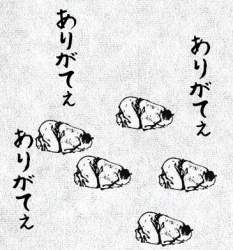 ありがてぇ
ありがてぇ
ありがてぇ